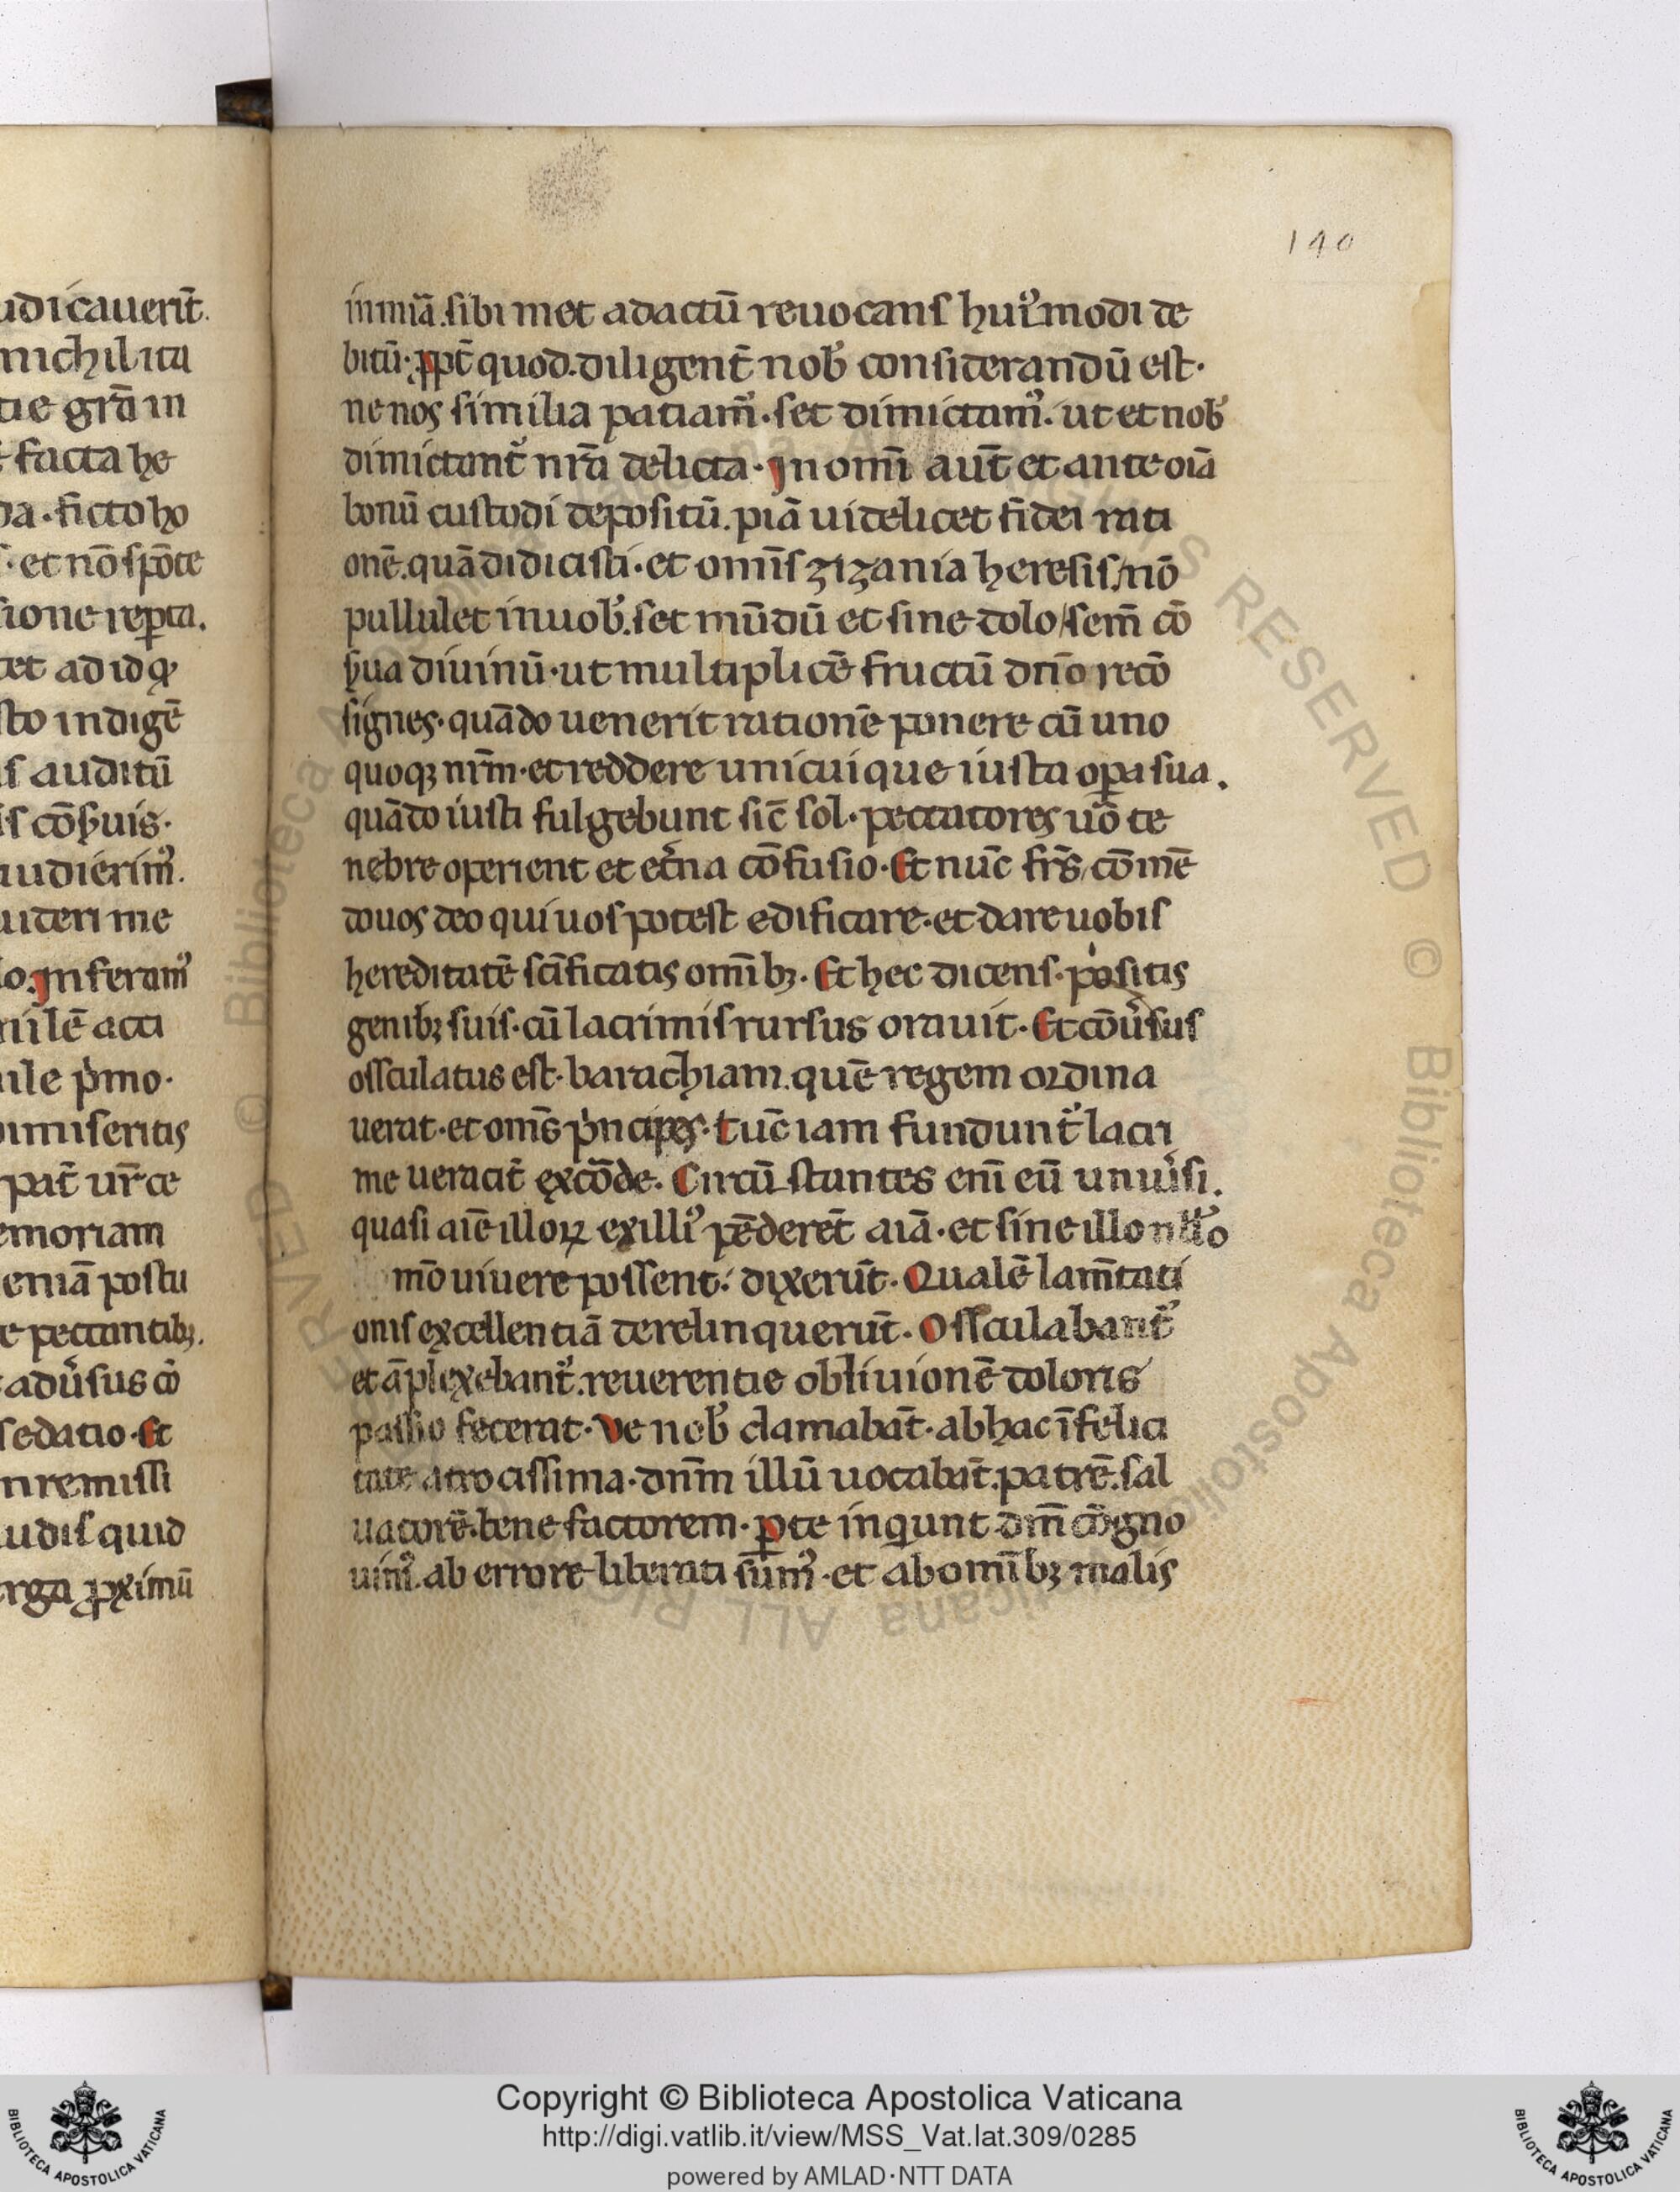 140
udicauerit̄.
nichil ita
tie grã in
facta he
da · ficto ho
et nõ spõte
sione rep̱ta.
cet ad id q̱
sto indigẽ
is auditũ
is cõs̱uis ·
audierim᷒.
uideri me
lo. Inferam᷒
milẽ acti
ile p̍mo ·
dimiseritis
pat̄ ur̃ ce
emoriam
eniã postu
e peccantibꝫ.
adũsus cõ
sedatio · Et
in remissi
udis quid
rga ꝓximũ
inmiã. sibimet ad actũ reuocans hui᷒modi de
bitũ · ꝓpt̄ quod. diligent̄ nob̄ considerandũ est ·
ne nos similia patiam᷒ · set dimictam᷒. ut et nob̄
dimictant᷒ nrã delicta · In omĩ aut̄ et ante oiã
bonũ custodi depositũ. piã uidelicet fidei rati
onẽ. quã didicisti · et omñs zizania heresis, nõ
pullulet in uob̄. set mũdũ et sine dolo / sem̃ cõ
s̱ua diuinũ · ut multiplicẽ fructũ dño recõ
signes · quãdo uenerit rationẽ ponere cũ uno
quoqꝫ nrm̃ · et reddere unicuique iusta op̱a sua.
quãdo iusti fulgebunt sic̄ sol · peccatores uõ te
nebre operient et et̄na cõfusio · Et nũc frs̃, cõmẽ
do uos deo qui uos potest edificare · et dare uobis
hereditatẽ sc̃ificatis omĩbꝫ. Et hec dicens · positis
genibꝫ suis · cũ lacrimis rursus orauit · Et cõũsus
osculatus est · barachiam. quẽ regem ordina
uerat · et oms̃ p̍ncipes · tũc iam fundunt᷒ lacri
me ueracit̄ ex cõde. Circũ stantes enĩ eũ unuũsi.
quasi aiẽ illoꝝ ex illi᷒ pẽderẽt aiã · et sine illo
mõ uiuere possent: dixerũt · Qualẽ lam̃tati
onis excellentiã derelinquerũt · Osculabant᷒
et ãplexebant᷒. reuerentie obliuionẽ doloris
passio fecerat · Ve nob̄ clamabãt · ab hac ĩfelici
tate atrocissima · dnm̃ illũ uocabãt. patrẽ. sal
uatorẽ. benefactorem · p̱ te inquiunt dm̃ cõgno
uim᷒. ab errore liberati sum᷒ · et ab omĩbꝫ malis
Copyright © Biblioteca Apostolica Vaticana
http://digi.vatlib.it/view/MSS_Vat.lat.309/0285
powered by AMLAD·NTT DATA
BIBLIOTECA APOSTOLICA VATICANA
BIBLIOTECA APOSTOLICA VATICANA